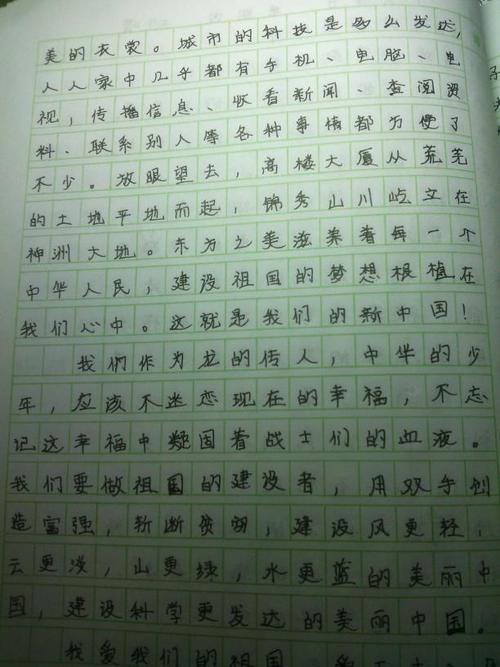 美的衣裳。城市的科技是多么发达,
人人家中几乎都有手机、电脑、电
视,传播信息、收看新闻、查阅资
料、联系别人等各种事情都方便了
不少。放眼望去,高楼大厦从荒芜
的土地平地而起,锦秀山川屹立在
神洲大地。东方之美滋养着每一个
中华人民,建设祖国的梦想根植在
我们心中。这就是我们的新中国!
我们作为龙的传人,中华的少
年,应该不迷恋现在的幸福,不忘
记这幸福中凝固着战士们的血液。
我们要做祖国的建设者,用双手创
造富强,斩断贫穷,建设风更轻,
云更淡,山更绿,水更蓝的美丽中
国,建设科学更发达的美丽中国。
我爱我们的祖国